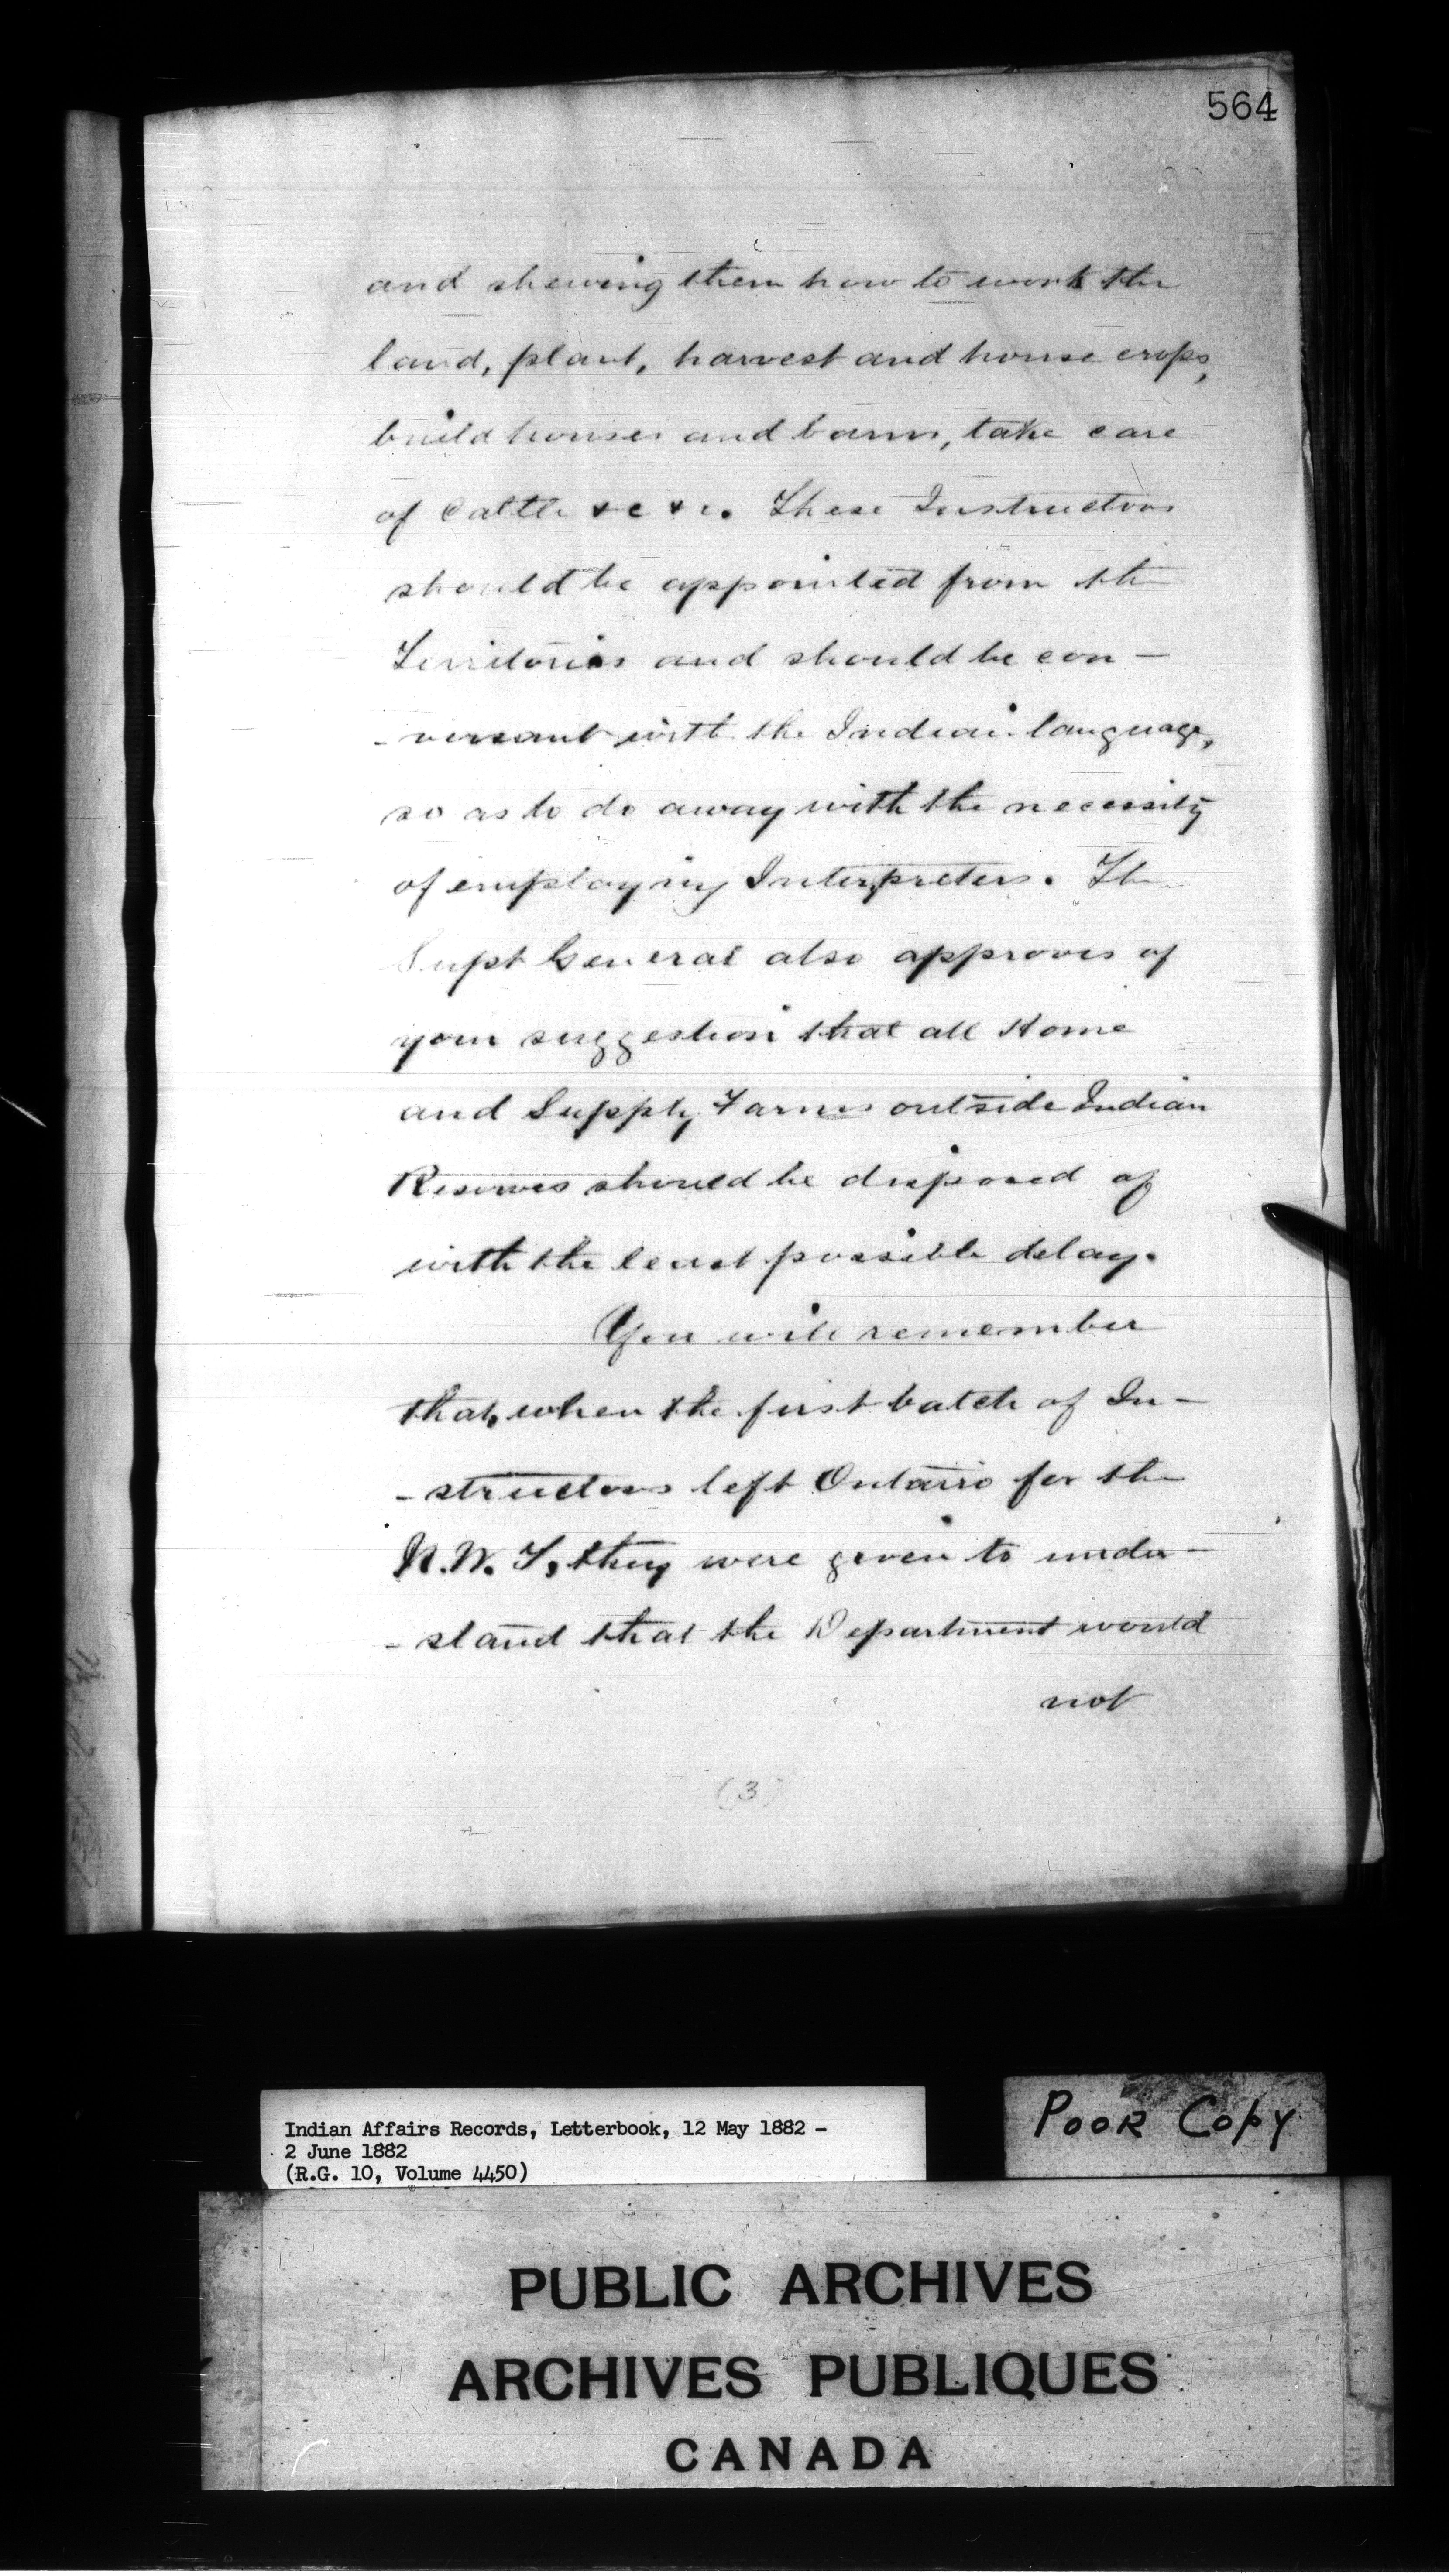 564
and shewing them how to work the
land, plant, harvest and house crops,
build houses and barns, take care
of Cattle &c &c. These Instructors
should be appointed from the
Territories and should be con-
-versant with the Indian language,
so as to do away with the necessity
of employing Interpreters. The
Supt General also approves of
your suggestion that all Home
and Supply Farms outside Indian
Reserves should be disposed of
with the least possible delay.
You will remember
that, when the first batch of In-
-structors left Ontario for the
N.W.T, they were given to under-
-stand that the Department would
not
(3)
Indian Affairs Records, Letterbook, 12 May 1882 -
2 June 1882
(R.G. 10, Volume 4450)
POOR COPY
PUBLIC ARCHIVES
ARCHIVES PUBLIQUES
CANADA